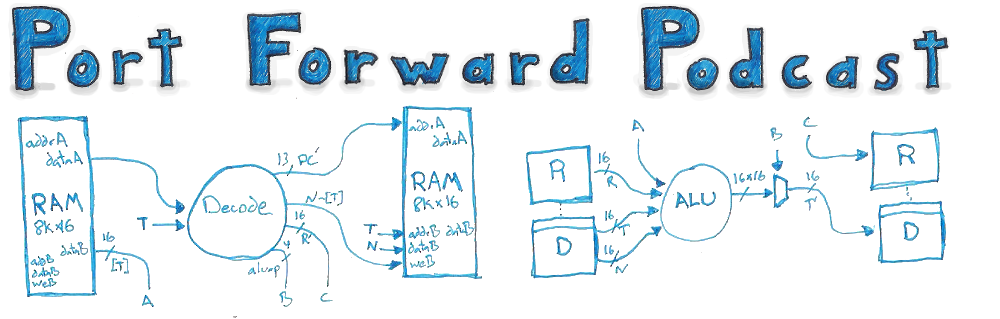 Port Forward Podcast
addrA
dataA
RAM
8K×16
dataB
addB
dataB
weB
16
[T]
A
T
Decode
13 PC'
N→[T]
16
R'
4
aluop
B
C
addrA
dataA
RAM
8K×16
T
N
addrB dataB
dataB
weB
R
D
16
R
16
T
16
N
A
ALU
16×16
B
16
T'
C
R
D